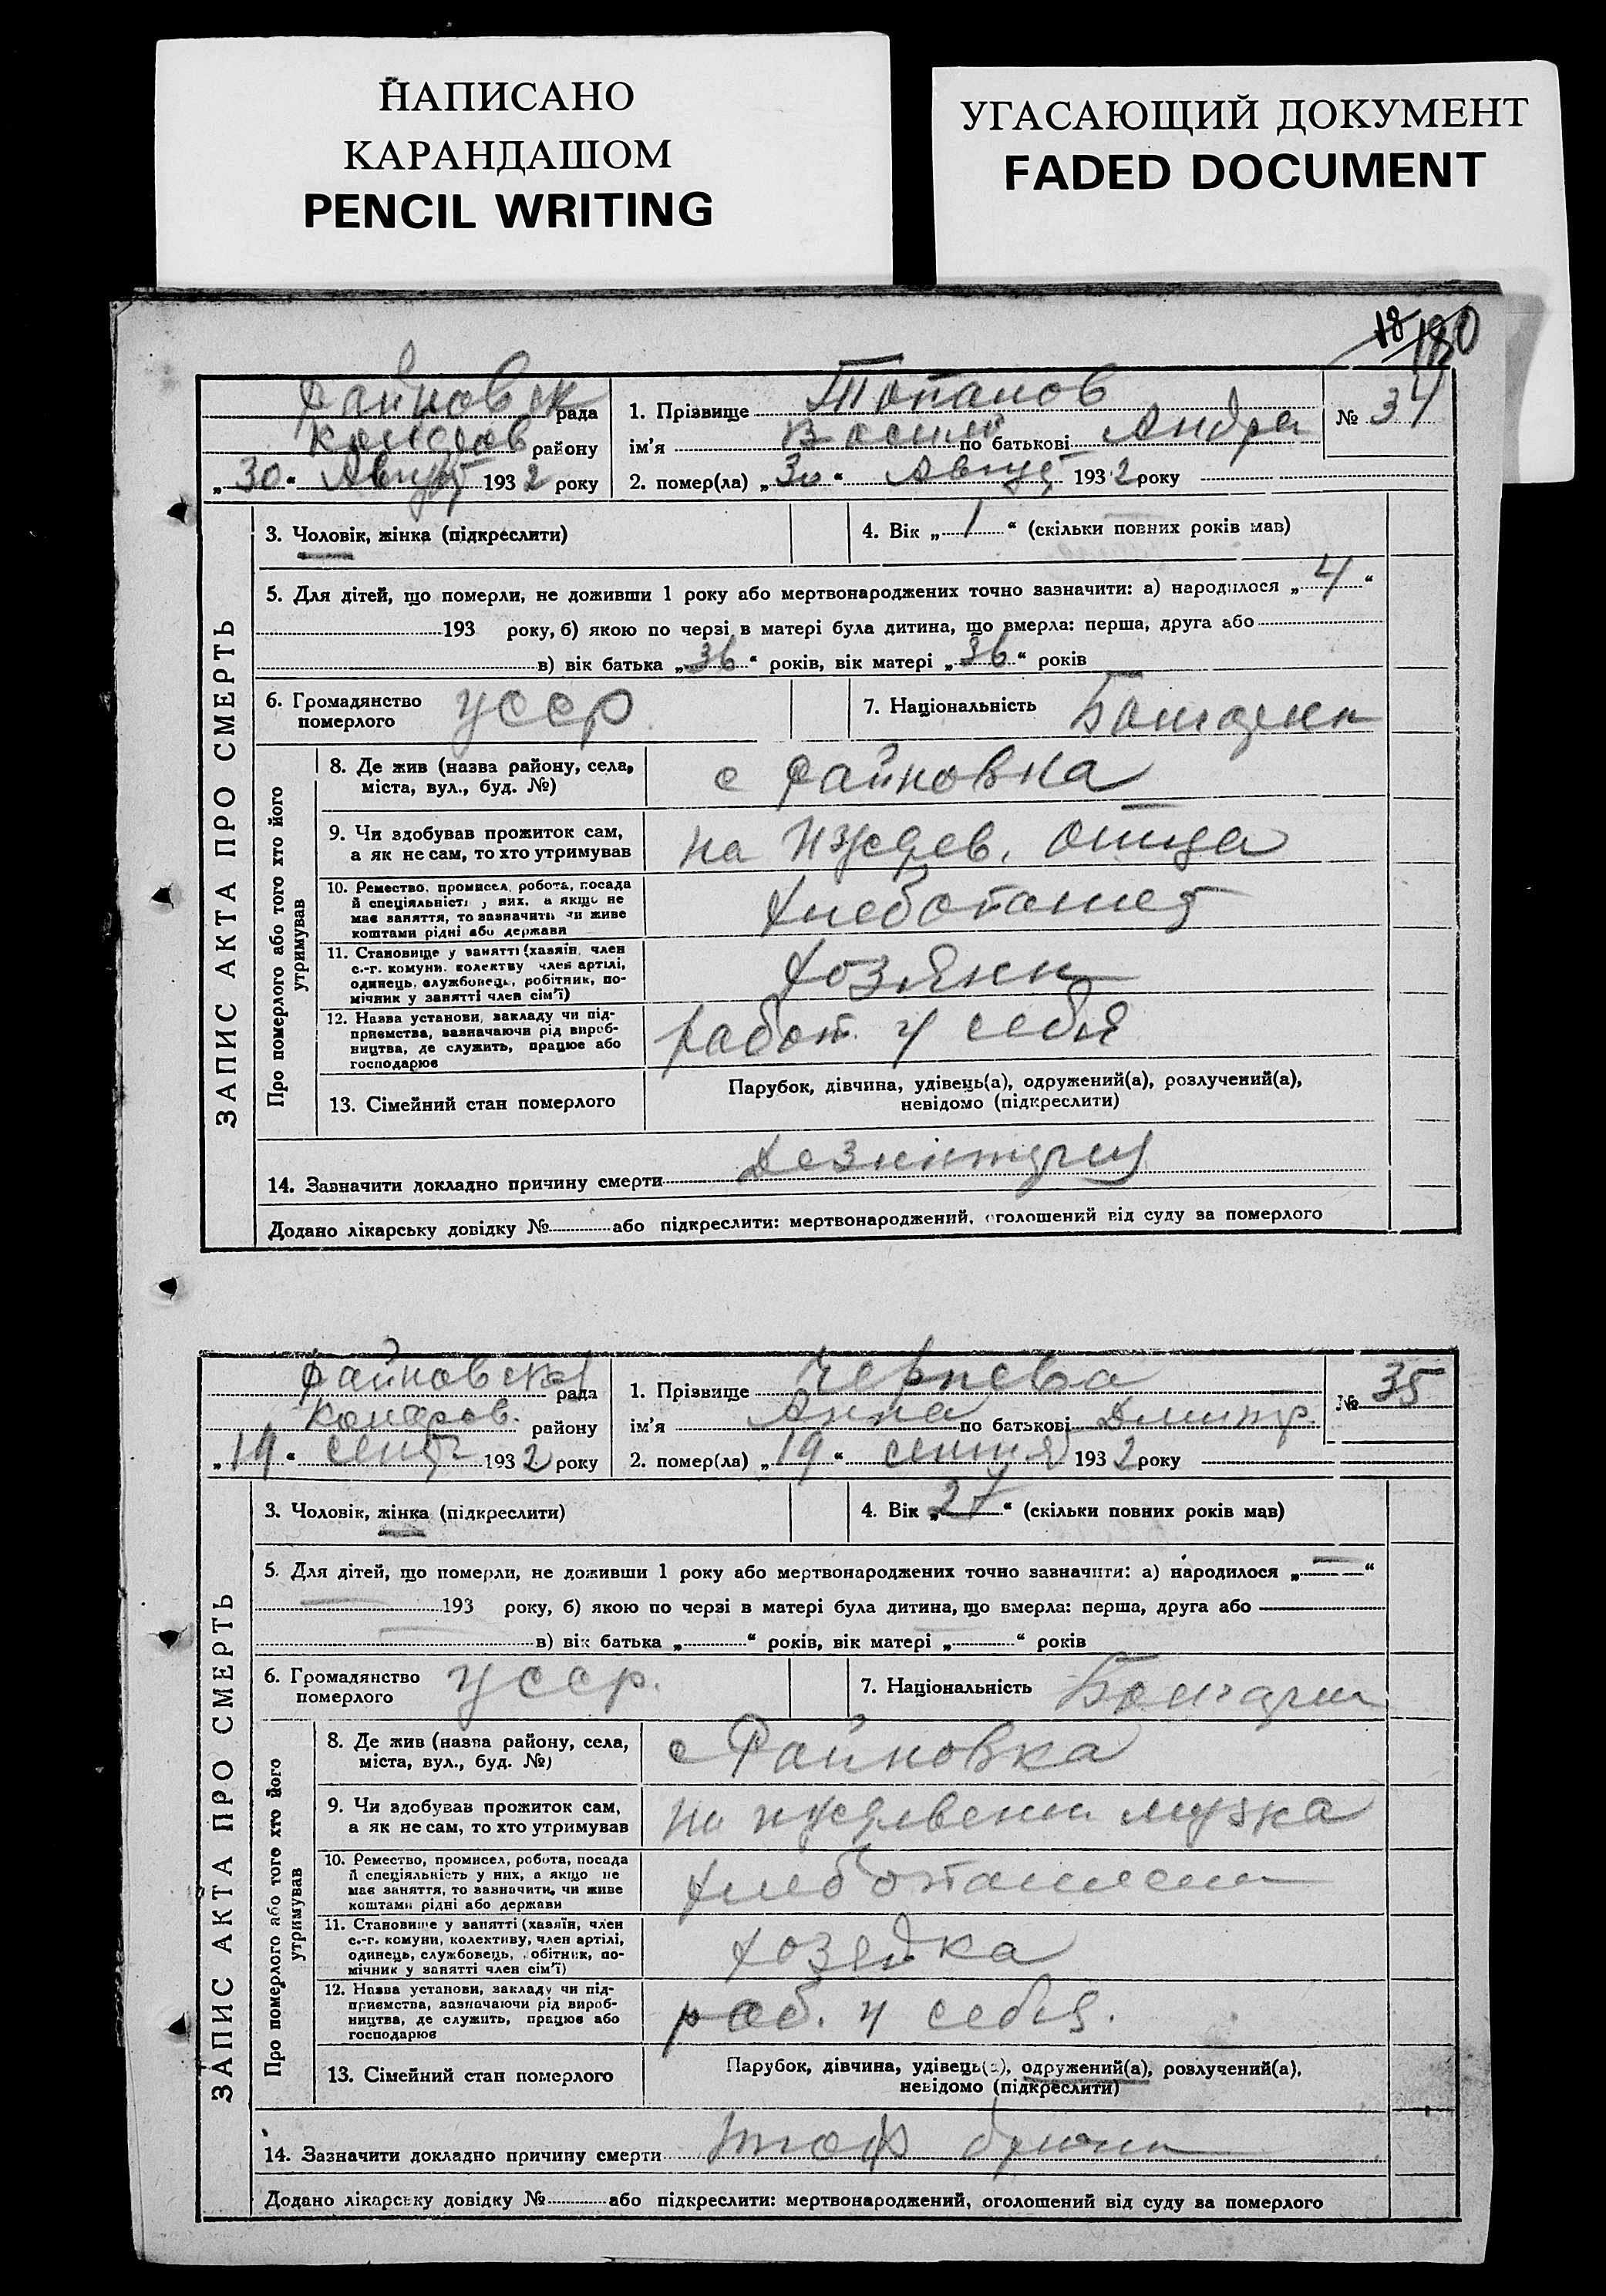 НАПИСАНО
КАРАНДАШОМ
PENCIL WRITING
УГАСАЮЩИЙ ДОКУМЕНТ
FADED DOCUMENT
18
180
Райновск рада
району
„30“ Август 1932 року
1. Прізвище Топалов
ім'я Васил по батькові Андре
2. помер(ла) „30“ Август 1932 року
№ 34
ЗАПИС АКТА ПРО СМЕРТЬ
3. Чоловік, жінка (підкреслити)
4. Вік „1“ (скільки повних років мав)
5. Для дітей, що померли, не доживши 1 року або мертвонароджених точно зазначити: а) народилося „4“
193 року, б) якою по черзі в матері була дитина, що вмерла: перша, друга або
в) вік батька „36“ років, вік матері „36“ років
6. Громадянство
померлого
УССР
7. Національність
Про померлого або того хто його
утримував
8. Де жив (назва району, села,
міста, вул., буд. №)
с Райновка
9. Чи здобував прожиток сам,
а як не сам, то хто утримував
на иждев. отца
10. Ремество, промисел, робота, посада
й спеціяльність у них, а якщо не
має заняття, то зазначити чи живе
коштами рідні або держави
Хлебопашец
11. Становище у занятті (хазяїн, член
с.-г. комуни, колективу член артілі,
одинець, службовець, робітник, по-
мічник у занятті член сім'ї)
хозяин
12. Назва установи, закладу чи під-
приємства, зазначаючи рід вироб-
ництва, де служить, працює або
господарює
работ. у себя
13. Сімейний стан померлого
Парубок, дівчина, удівець(а), одружений(а), розлучений(а),
невідомо (підкреслити)
14. Зазначити докладно причину смерти
Додано лікарську довідку № або підкреслити: мертвонароджений, оголошений від суду за померлого
Райновская рада
Комаров. району
„19“ сентяб 1932 року
1. Прізвище Чернева
ім'я Анна по батькові Дмитр.
2. помер(ла) „19“ сентяб 1932 року
№ 35
ЗАПИС АКТА ПРО СМЕРТЬ
3. Чоловік, жінка (підкреслити)
4. Вік „27“ (скільки повних років мав)
5. Для дітей, що померли, не доживши 1 року або мертвонароджених точно зазначити: а) народилося „—“
193 року, б) якою по черзі в матері була дитина, що вмерла: перша, друга або
в) вік батька „“ років, вік матері „“ років
6. Громадянство
померлого
УССР.
7. Національність
Про померлого або того хто його
утримував
8. Де жив (назва району, села,
міста, вул., буд. №)
с Райновка
9. Чи здобував прожиток сам,
а як не сам, то хто утримував
на мужа
10. Ремество, промисел, робота, посада
й спеціяльність у них, а якщо не
має заняття, то зазначити, чи живе
коштами рідні або держави
11. Становище у занятті (хазяїн, член
с.-г. комуни, колективу, член артілі,
одинець, службовець, робітник, по-
мічник у занятті член сім'ї)
хозяйка
12. Назва установи, закладу чи під-
приємства, зазначаючи рід вироб-
ництва, де служить, працює або
господарює
раб. у себя.
13. Сімейний стан померлого
Парубок, дівчина, удівець(а), одружений(а), розлучений(а),
невідомо (підкреслити)
14. Зазначити докладно причину смерти
Додано лікарську довідку № або підкреслити: мертвонароджений, оголошений від суду за померлого